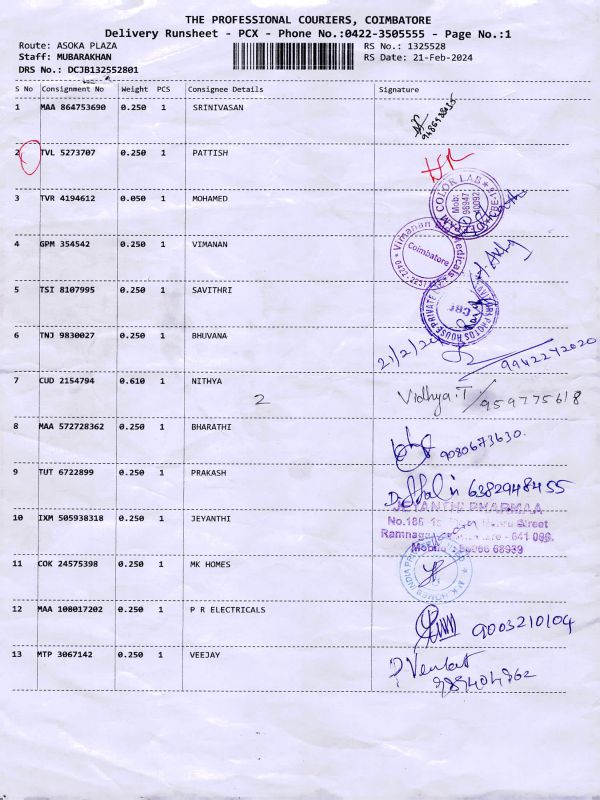 THE PROFESSIONAL COURIERS, COIMBATORE
Delivery Runsheet - PCX - Phone No.:0422-3505555 - Page No.:1
Route: ASOKA PLAZA RS No.: 1325528
Staff: MUBARAKHAN RS Date: 21-Feb-2024
DRS No.: DCJB132552801
S No Consignment No Weight PCS Consignee Details Signature
1 MAA 864753690 0.250 1 SRINIVASAN
2 TVL 5273707 0.250 1 PATTISH
3 TVR 4194612 0.050 1 MOHAMED
COLOR LAB
Mob:
4 GPM 354542 0.250 1 VIMANAN
Vimanan Medicals
Coimbatore
5 TSI 8107995 0.250 1 SAVITHRI
SAVITHRI PHOTOS HOUSE PRIVATE
CBE
6 TNJ 9830027 0.250 1 BHUVANA
21/2/2
9942272020
7 CUD 2154794 0.610 1 NITHYA
2
Vidhya.T / 959775618
8 MAA 572728362 0.250 1 BHARATHI
9080673630.
9 TUT 6722899 0.250 1 PRAKASH
6382948455
10 IXM 505938318 0.250 1 JEYANTHI
JEYANTHI PHARMAA
No.186 Street
Ramnagar - 641 009.
Mobile 68939
11 COK 24575398 0.250 1 MK HOMES
M K HOMES INDIA
12 MAA 108017202 0.250 1 P R ELECTRICALS
9003210104
13 MTP 3067142 0.250 1 VEEJAY
Venkat